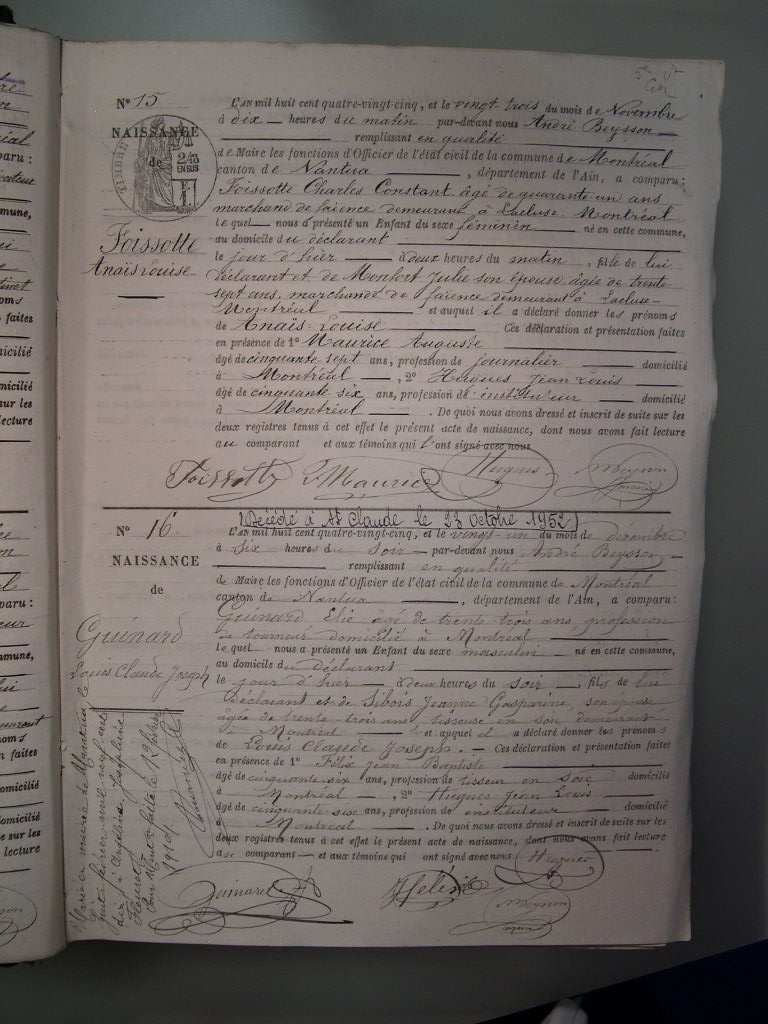 N° 15
NAISSANCE
de
2/10
EN SUS
Foissotte
Anaïs Louise
L'AN mil huit cent quatre-vingt-cinq, et le vingt trois du mois de Novembre
à dix heures du matin par-devant nous André Beysson
remplissant en qualité
de Maire les fonctions d'Officier de l'état civil de la commune de Montréal
canton de Nantua, département de l'Ain, a comparu:
Foissotte Charles Constant âgé de quarante un ans
marchand de faïence demeurant à Lacluse-Montréal
lequel nous a présenté un Enfant du sexe féminin né en cette commune,
au domicile du déclarant
le jour d'hier à deux heures du matin, fille de lui
déclarant et de Monfort Julie son épouse âgée de trente
sept ans, marchande de faïence demeurant à Lacluse-
Montréal et auquel il a déclaré donner les prénoms
de Anaïs-Louise Ces déclaration et présentation faites
en présence de 1° Maurice Auguste
âgé de cinquante sept ans, profession de journalier domicilié
à Montréal, 2° Hugues Jean Louis
âgé de cinquante six ans, profession de instituteur domicilié
à Montréal. De quoi nous avons dressé et inscrit de suite sur les
deux registres tenus à cet effet le présent acte de naissance, dont nous avons fait lecture
au comparant et aux témoins qui l'ont signé avec nous
Foissotte Maurice Hugues
N° 16
NAISSANCE
de
Guénard
Louis Claude Joseph
Décédé à St Claude le 23 Octobre 1952
L'AN mil huit cent quatre-vingt-cinq, et le vingt-un du mois de décembre
à six heures du soir par-devant nous André Beysson
remplissant en qualité
de Maire les fonctions d'Officier de l'état civil de la commune de Montréal
canton de Nantua, département de l'Ain, a comparu:
Guénard Elie âgé de trente trois ans profession
de tourneur domicilié à Montréal
lequel nous a présenté un Enfant du sexe masculin né en cette commune,
au domicile du déclarant
le jour d'hier à deux heures du soir, fils de lui
déclarant et de Jeanne Gasparine, son épouse
âgée de trente trois ans tisseuse en soie demeurant
à Montréal et auquel il a déclaré donner les prénoms
de Louis Claude Joseph. Ces déclaration et présentation faites
en présence de 1° Félix Jean Baptiste
âgé de cinquante six ans, profession de tisseur en soie domicilié
à Montréal, 2° Hugues Jean Louis
âgé de cinquante six ans, profession de instituteur domicilié
à Montréal. De quoi nous avons dressé et inscrit de suite sur les
deux registres tenus à cet effet le présent acte de naissance, dont nous avons fait lecture
au comparant et aux témoins qui ont signé avec nous Hugues
Guénard Félix